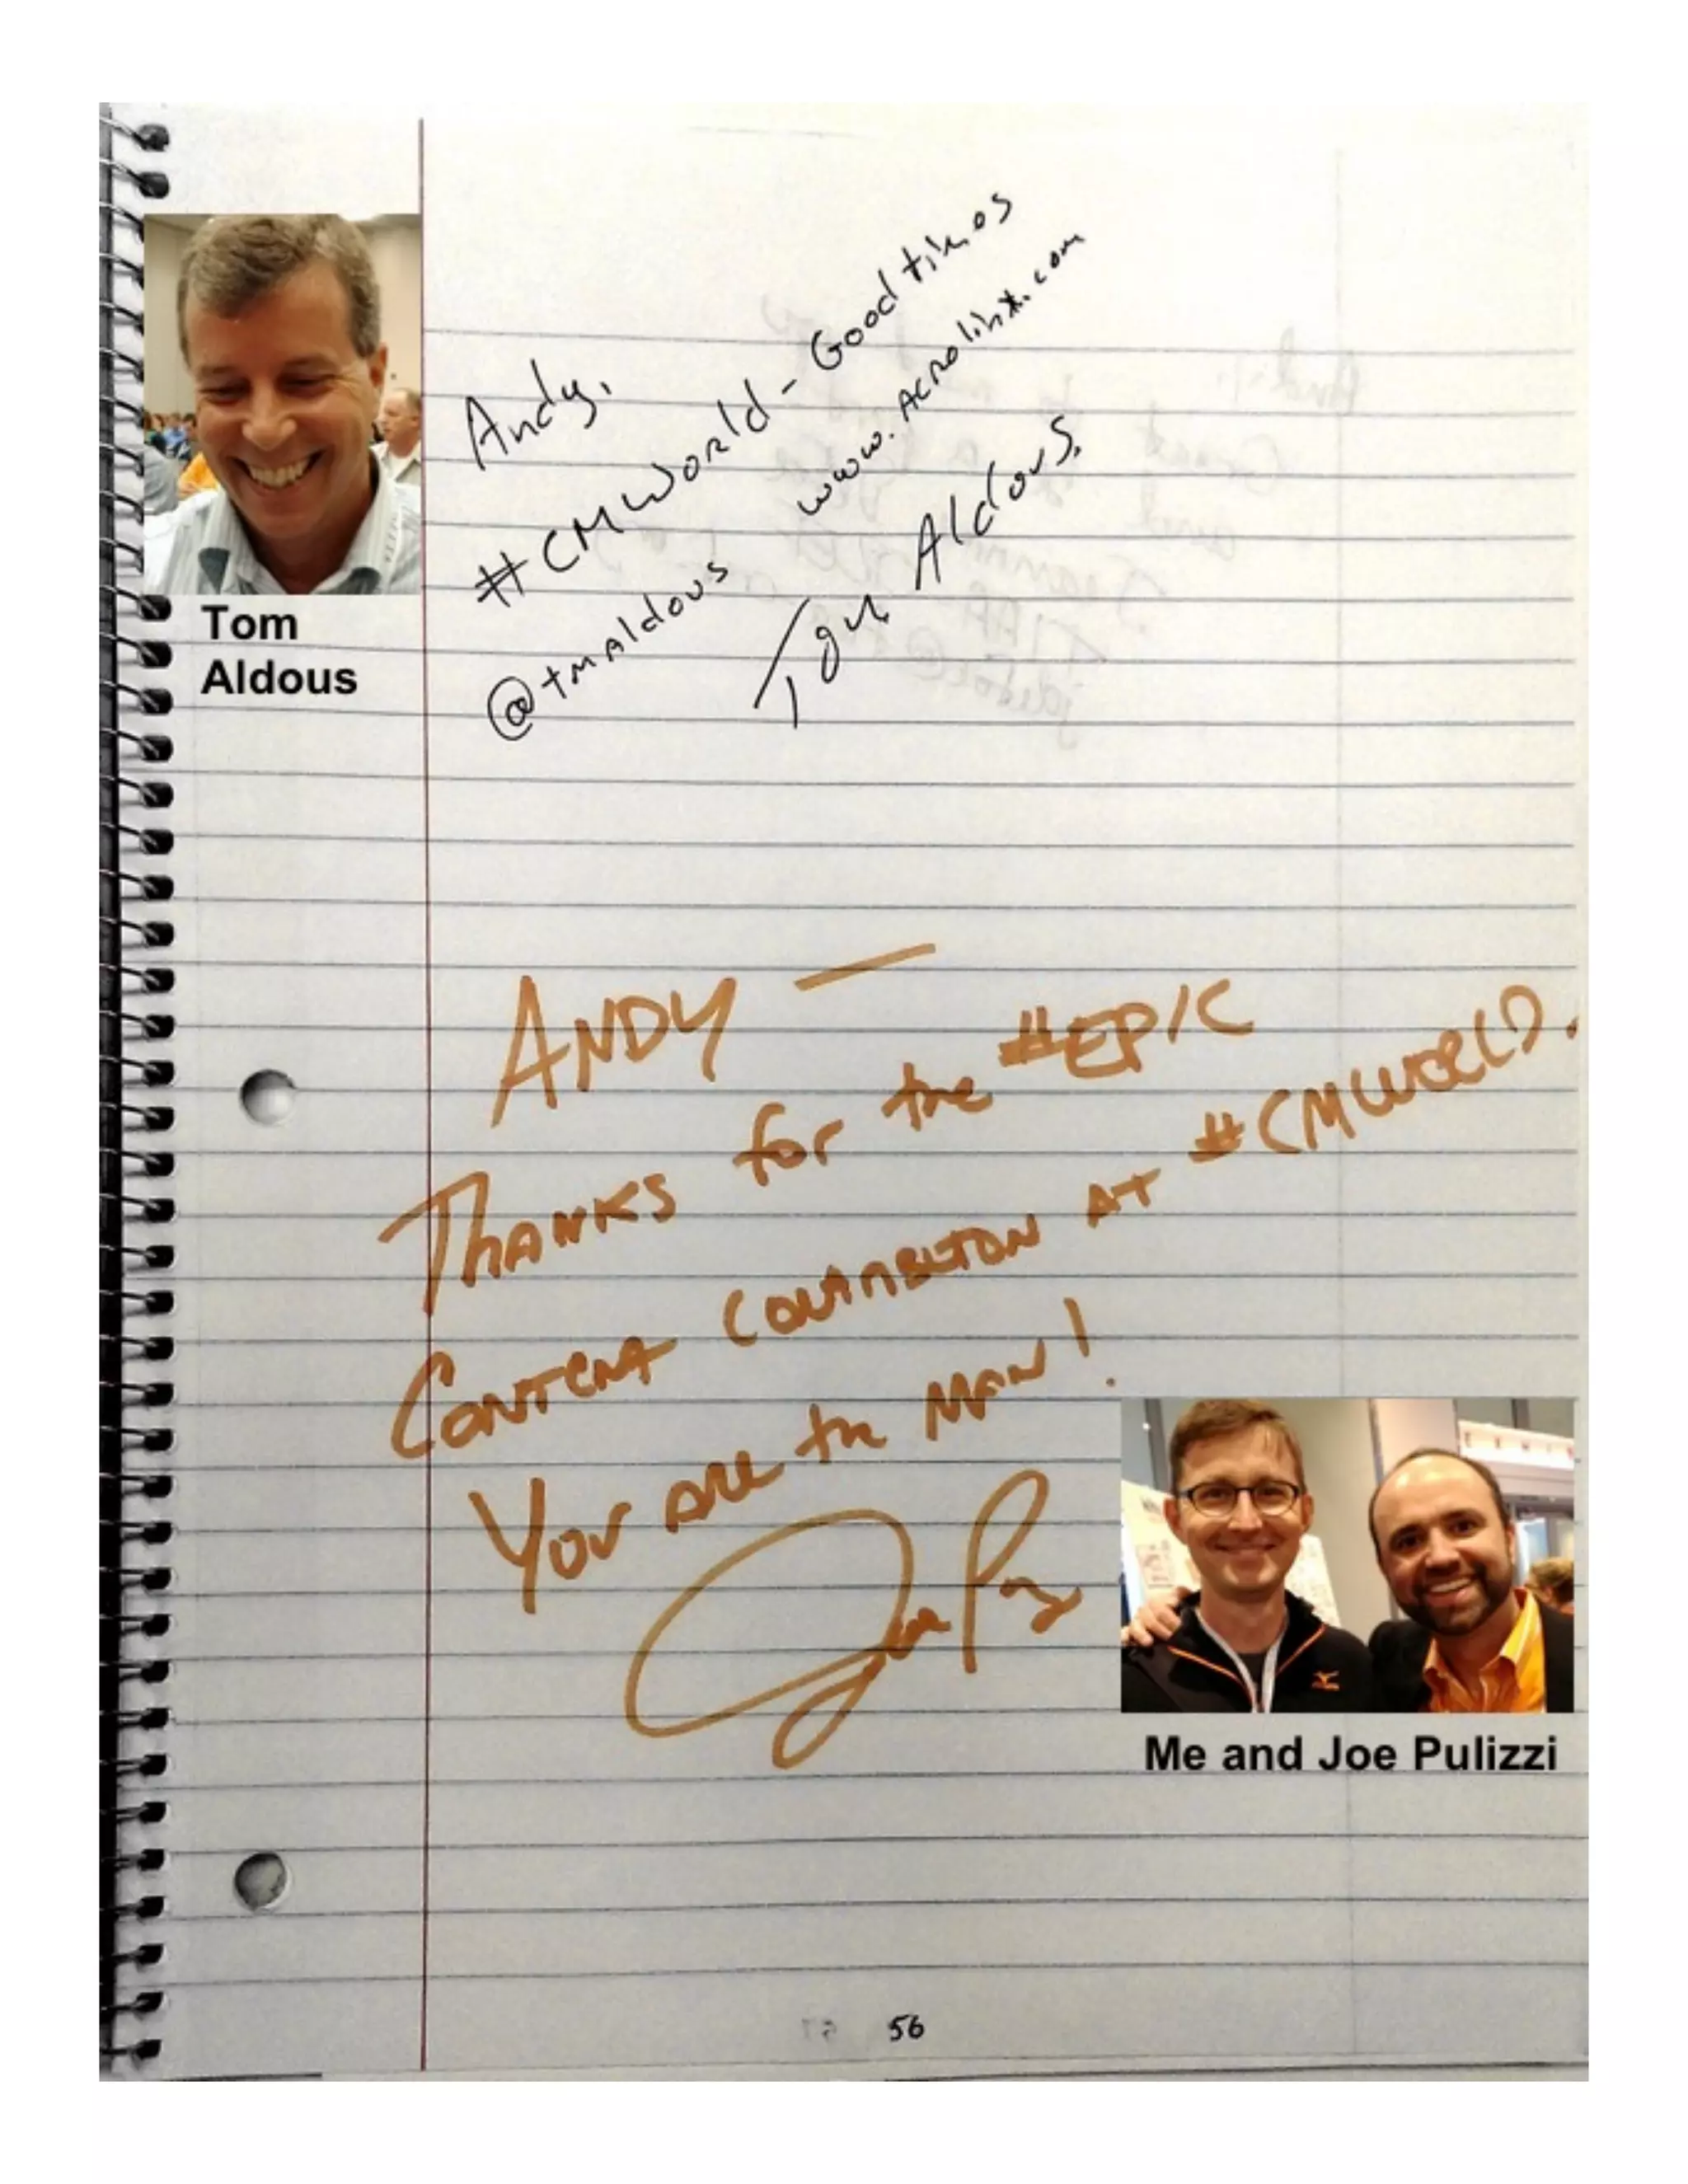 Andy,
#CMWorld - Good times
@tmaldous www.acrolinx.com
Tom Aldous
Tom
Aldous
ANDY —
THANKS for the #EPIC
CONTENT CONTRIBUTION AT #CMWORLD.
YOU ARE the MAN!
Joe P
Me and Joe Pulizzi
56